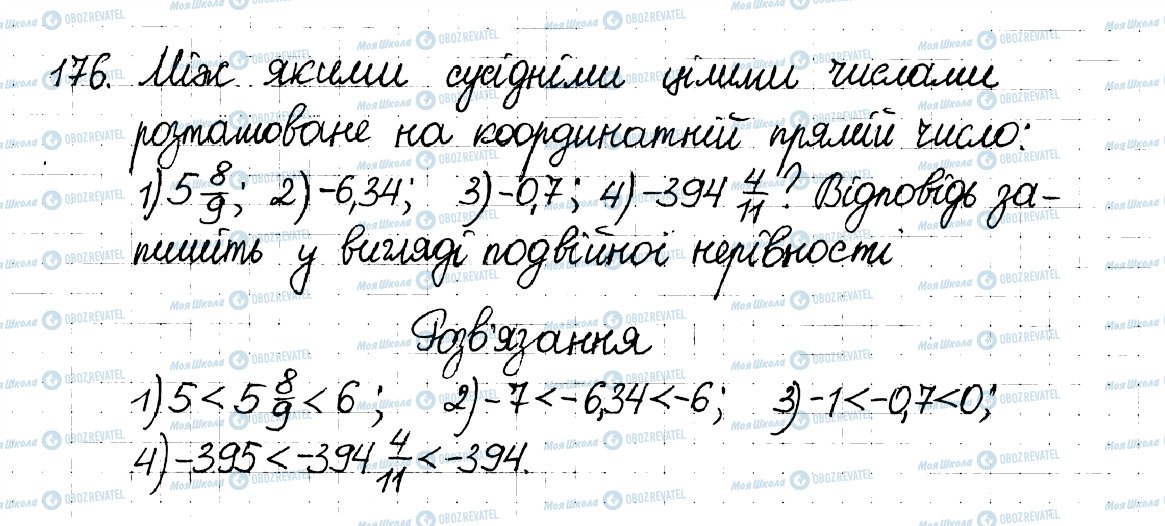 176. Між якими сусідніми цілими числами
розташоване на координатній прямій число:
1) 5 8/9; 2) -6,34; 3) -0,7; 4) -394 4/11? Відповідь за-
пишіть у вигляді подвійної нерівності
Розв'язання
1) 5 < 5 8/9 < 6; 2) -7 < -6,34 < -6; 3) -1 < -0,7 < 0;
4) -395 < -394 4/11 < -394.